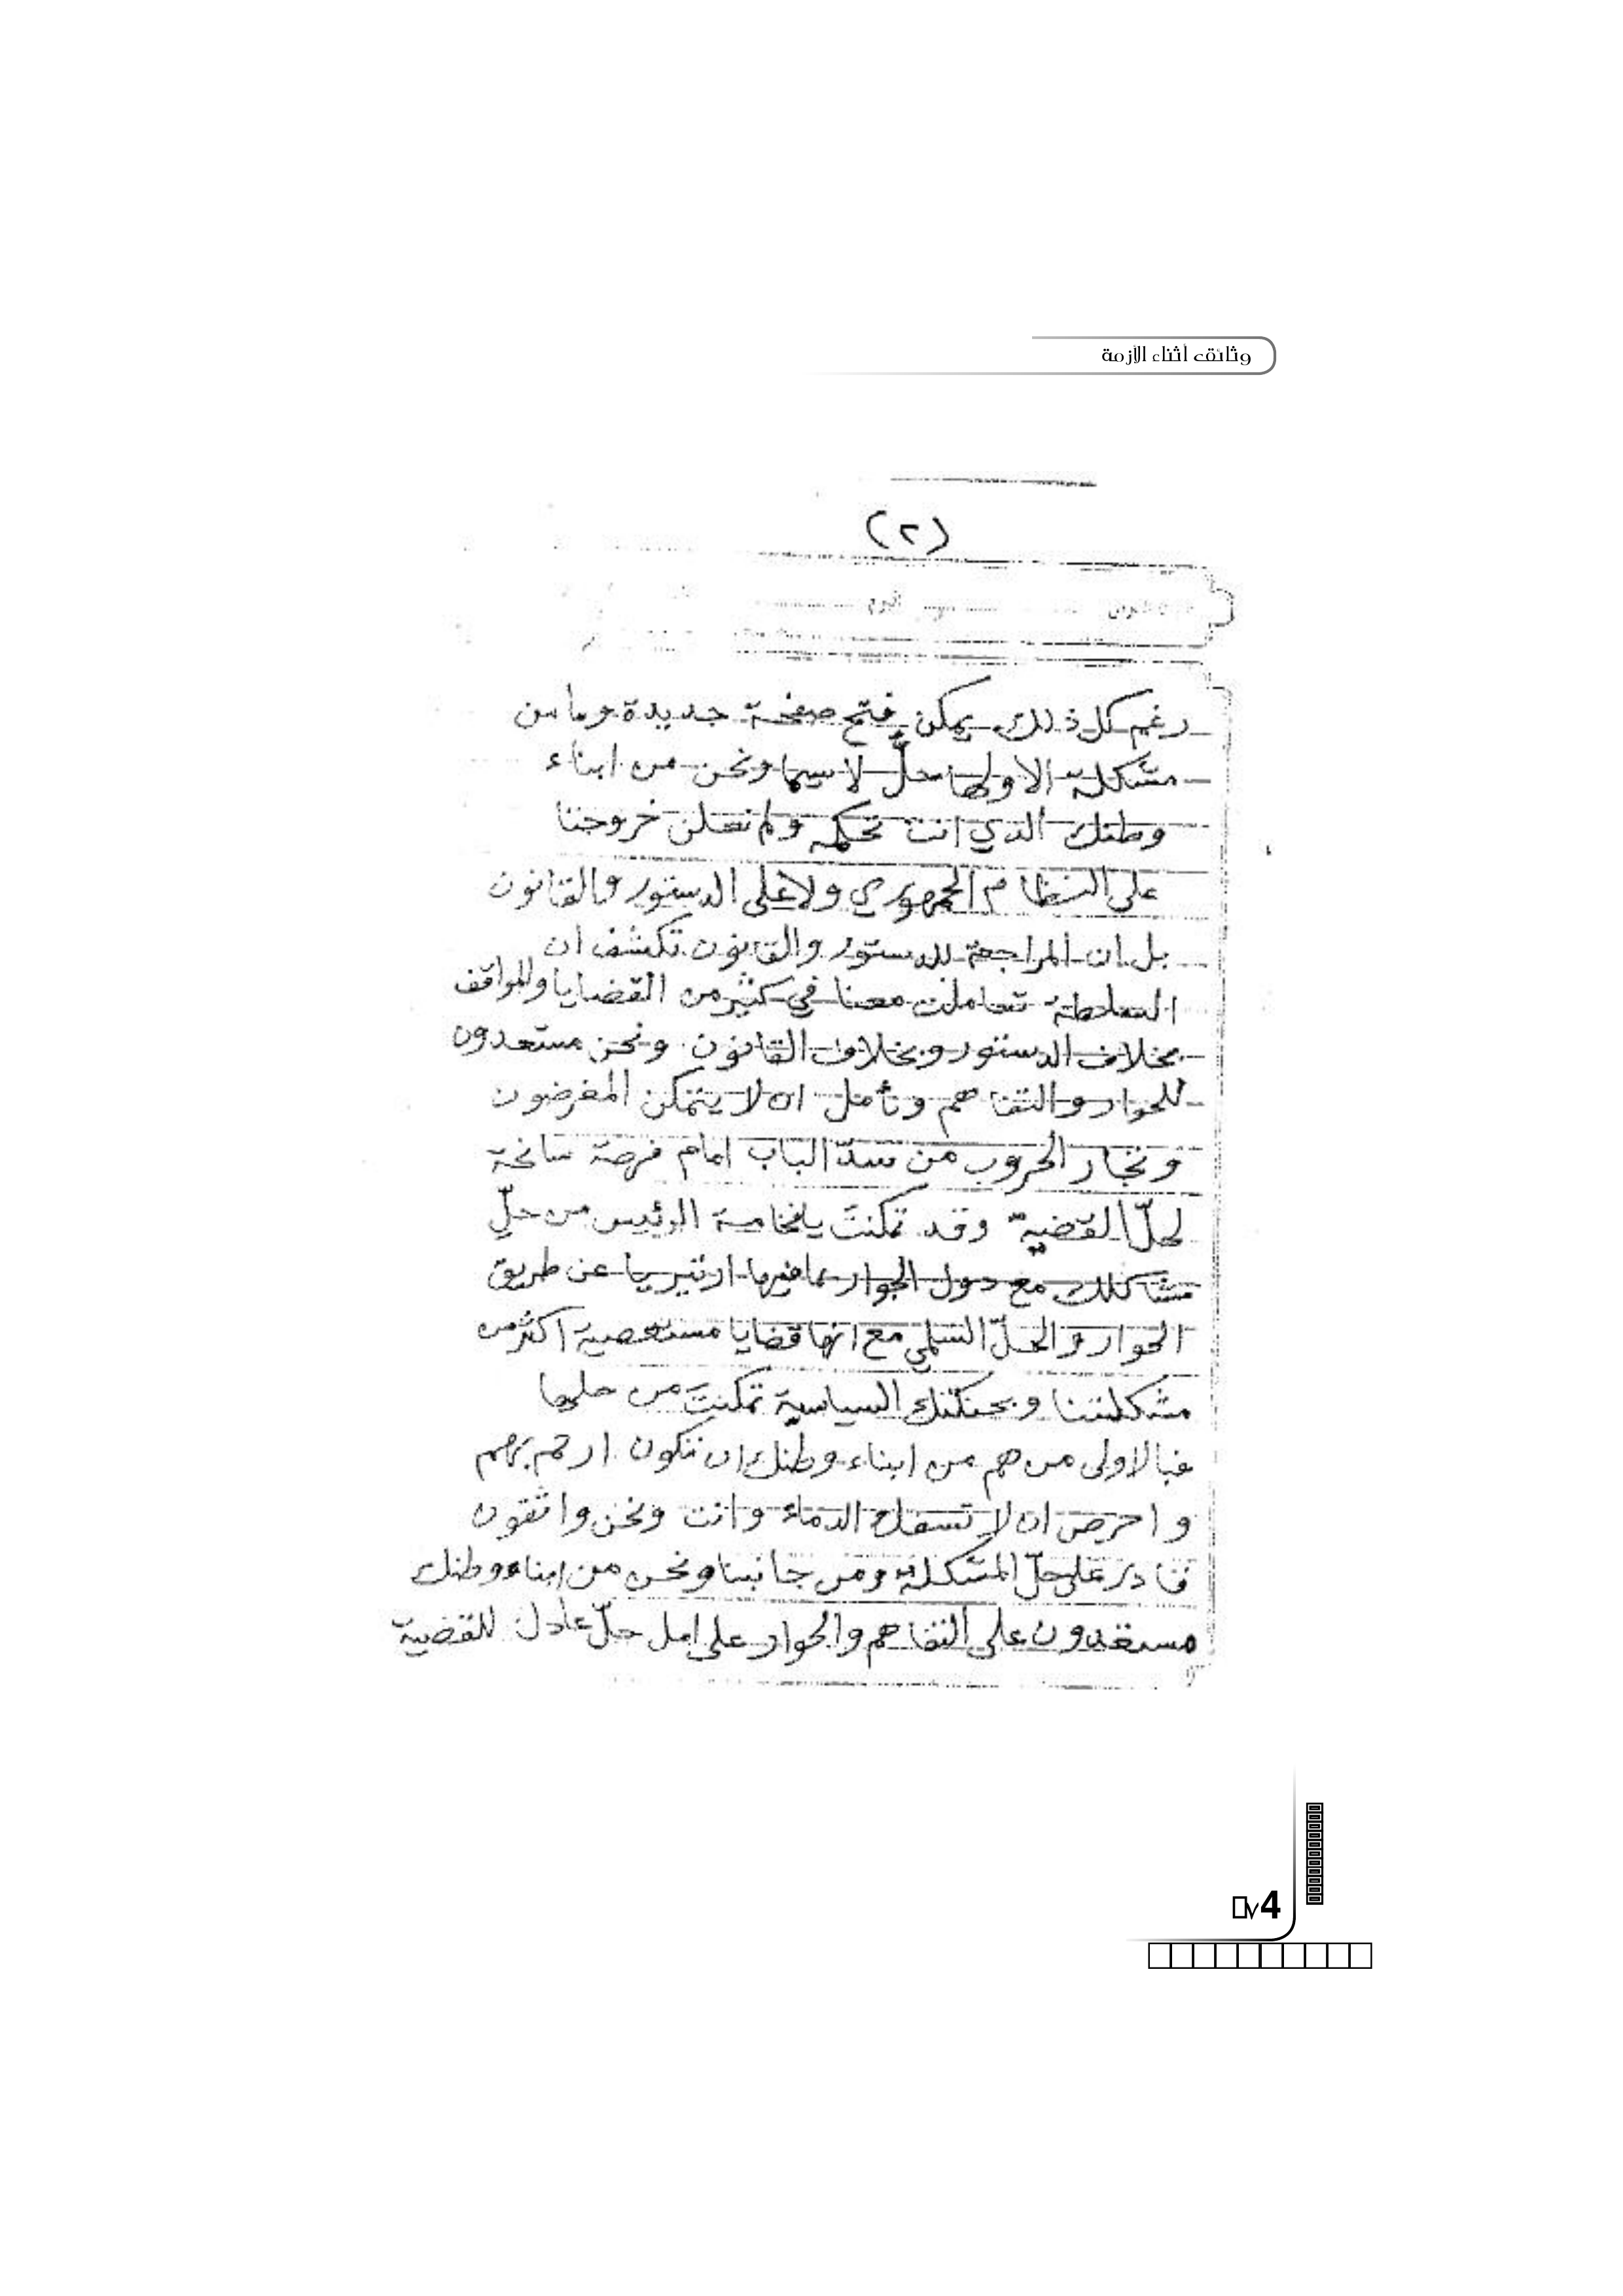 وثائق أثناء الأزمة
(٢)
رغم كل ذلك يمكن فتح صفحة جديدة وما من
مشكلة الا ولها حلّ لا سيما ونحن من ابناء
وطنك الذي انت تحكمه ولم نعلن خروجنا
على النظام الجمهوري ولا على الدستور والقانون
بل ان المراجعة للدستور والقانون تكشف ان
السلطة تعاملت معنا في كثير من القضايا والمواقف
بخلاف الدستور وبخلاف القانون. ونحن مستعدون
للحوار والتفاهم ونأمل ان لا يتمكن المغرضون
وتجار الحروب من سدّ الباب امام فرصة سانحة
لحلّ القضية وقد تمكنتَ يا فخامة الرئيس من حلّ
مشاكلك مع دول الجوار بما فيها ارتيريا عن طريق
الحوار والحلّ السلمي مع انها قضايا مستعصية اكثر من
مشكلتنا وبحنكتك السياسية تمكنتَ من حلها
فبالاولى من هم من ابناء وطنك ان تكون ارحم بهم
واحرص ان لا تسفك الدماء وانت ونحن واثقون
قادر على حلّ المشكلة ومن جانبنا ونحن من ابناء وطنك
مستعدون على التفاهم والحوار على امل حلّ عادل للقضية
4